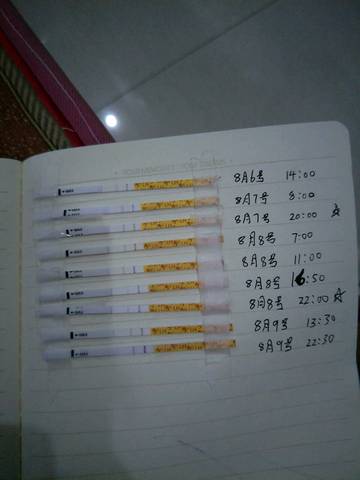 8月6号 14:00
8月7号 8:00
8月7号 20:00 ☆
8月8号 7:00
8月8号 11:00
8月8号 16:50
8月8号 22:00 ☆
8月9号 13:30
8月9号 22:30